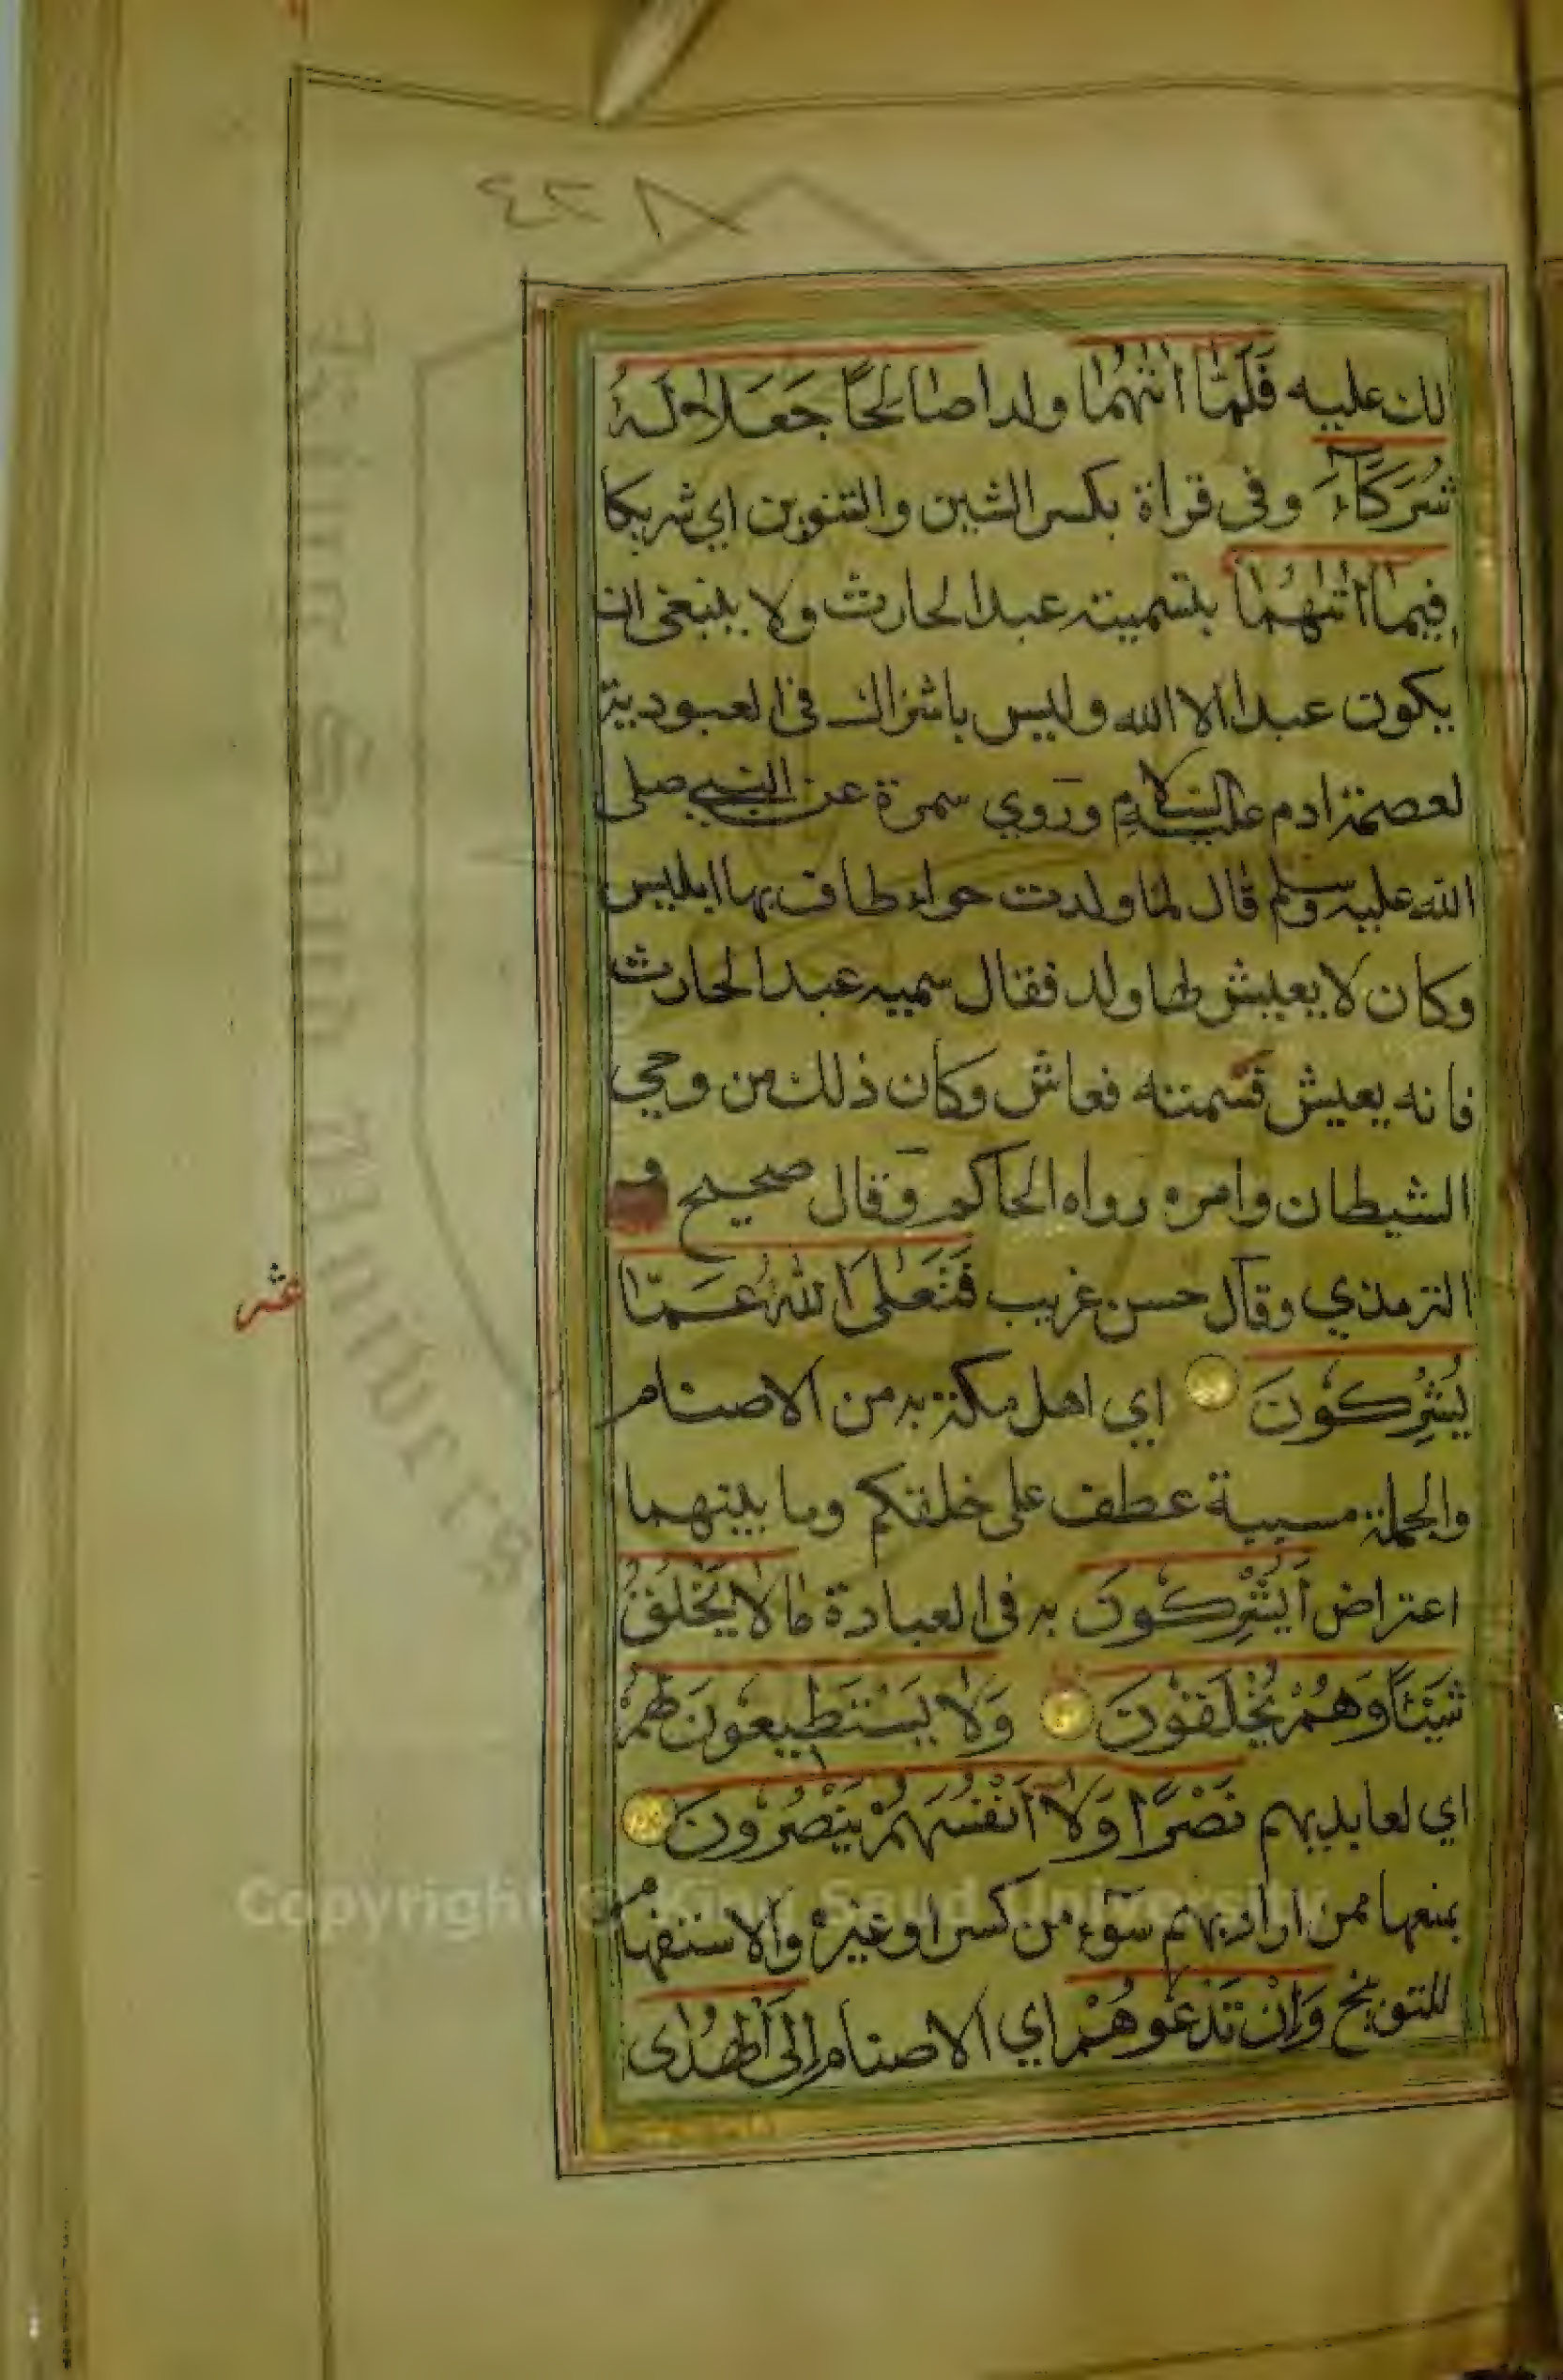 ٤٢٨
لك عليه فَلَمَّا اٰتٰىهُمَا ولدا صَالِحًا جَعَلَا لَهُ
شُرَكَاءَ وفي قراة بكسر الشين والتنوين اي شريكا
فِيمَا اٰتٰىهُمَا بتسميته عبد الحارث ولا ينبغي ان
يكون عبدا الا الله وليس باشراك في العبودية
لعصمة ادم عليه السلام وروي سمرة عن النبي صلى
الله عليه وسلم قال لما ولدت حواء طاف بها ابليس
وكان لا يعيش لها ولد فقال سميه عبد الحارث
فانه يعيش فسمته فعاش وكان ذلك من وحي
الشيطان وامره رواه الحاكم وقال صحيح و
الترمذي وقال حسن غريب فَتَعٰلَى اللّٰهُ عَمَّا
يُشْرِكُونَ اي اهل مكة به من الاصنام
والجملة مسببة عطف على خلقكم وما بينهما
اعتراض اَيُشْرِكُونَ به في العبادة مَا لَا يَخْلُقُ
شَيْئًا وَهُمْ يُخْلَقُونَ وَلَا يَسْتَطِيعُونَ لَهُمْ
اي لعابديهم نَصْرًا وَلَا اَنْفُسَهُمْ يَنْصُرُونَ
بمنعها ممن اراد بهم سوء من كسر او غيره والاستفهام
للتوبيخ وَاِنْ تَدْعُوهُمْ اي الاصنام اِلَى الْهُدٰى
عشر
King Saud University
Copyright © King Saud University